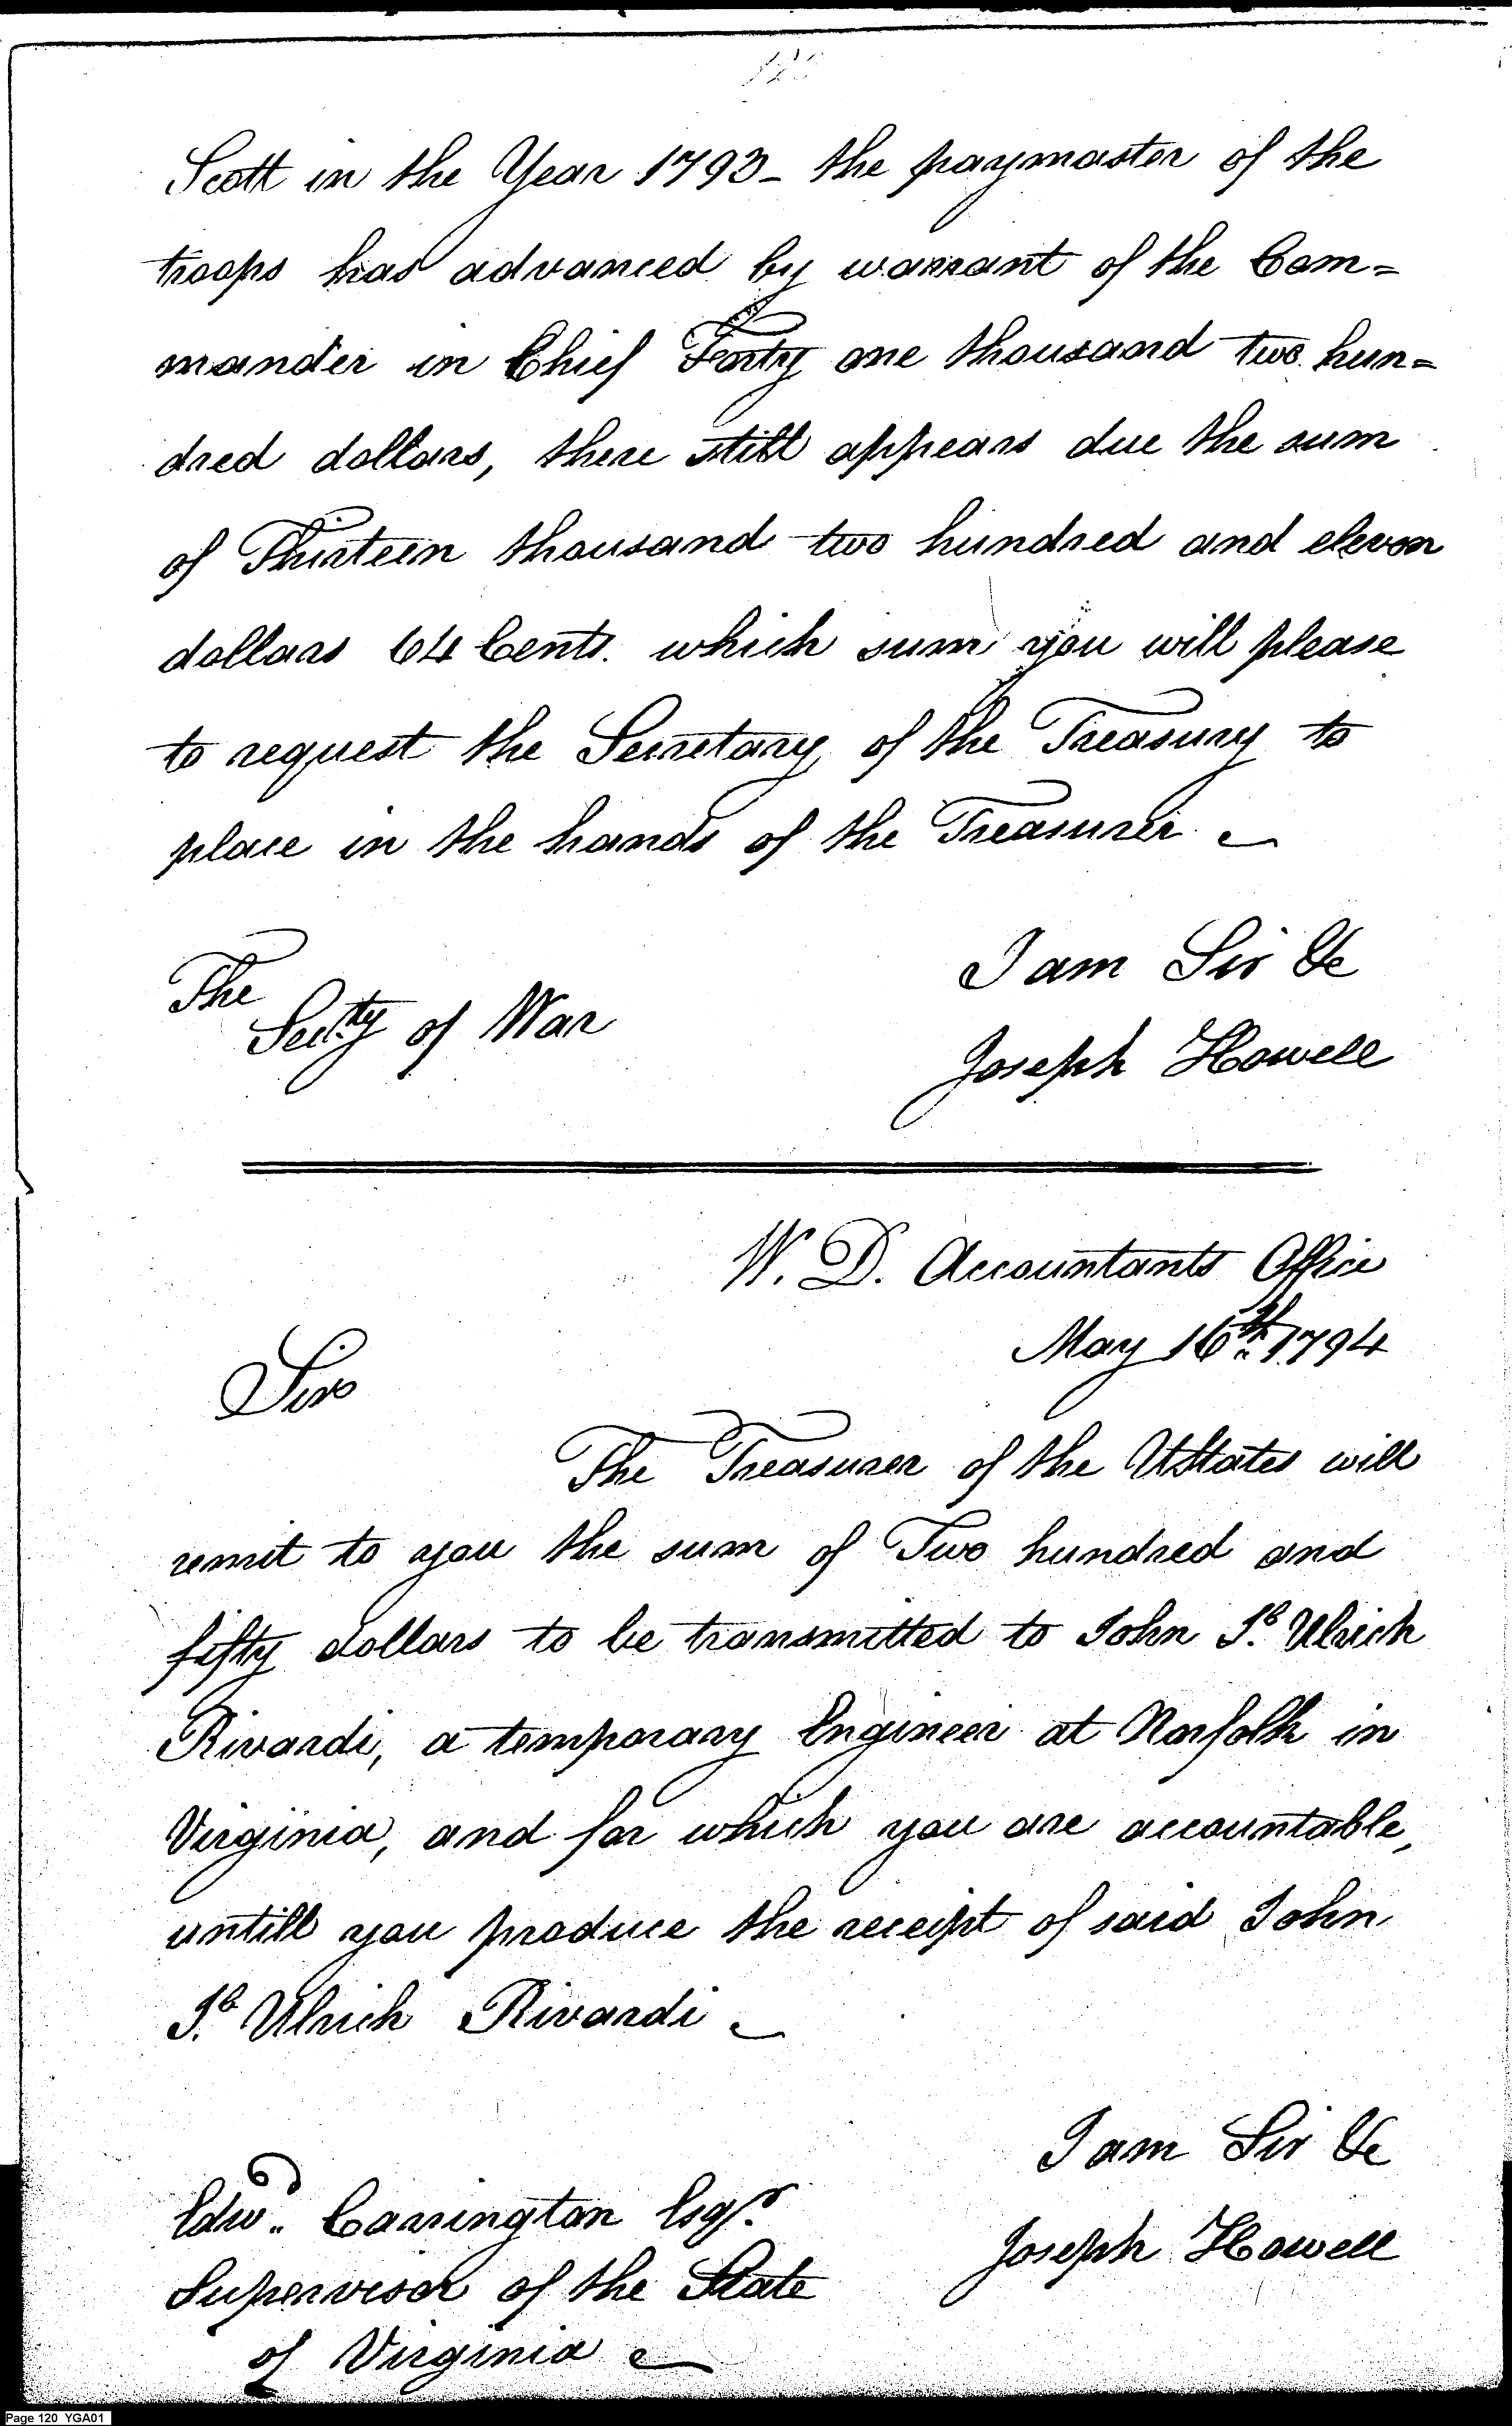 120
Scott in the Year 1793 - the paymaster of the
troops has advanced by warrant of the Com=
mander in Chief Forty one thousand two hun=
dred dollars, there still appears due the sum
of Thirteen thousand two hundred and eleven
dollars 64 Cents. which sum you will please
to request the Secretary of the Treasury to
place in the hands of the Treasurer
I am Sir &c
The
Secty of War
Joseph Howell
W. D. Accountants Office
May 16th 1794
Sir
The Treasurer of the UStates will
remit to you the sum of Two hundred and
fifty dollars to be transmitted to John Jb. Ulrich
Rivardi, a temporary Engineer at Norfolk in
Virginia, and for which you are accountable,
untill you produce the receipt of said John
Jb. Ulrich Rivardi
I am Sir &c
Edwd. Carrington Esqr.
Joseph Howell
Supervisor of the State
of Virginia
Page 120 YGA01